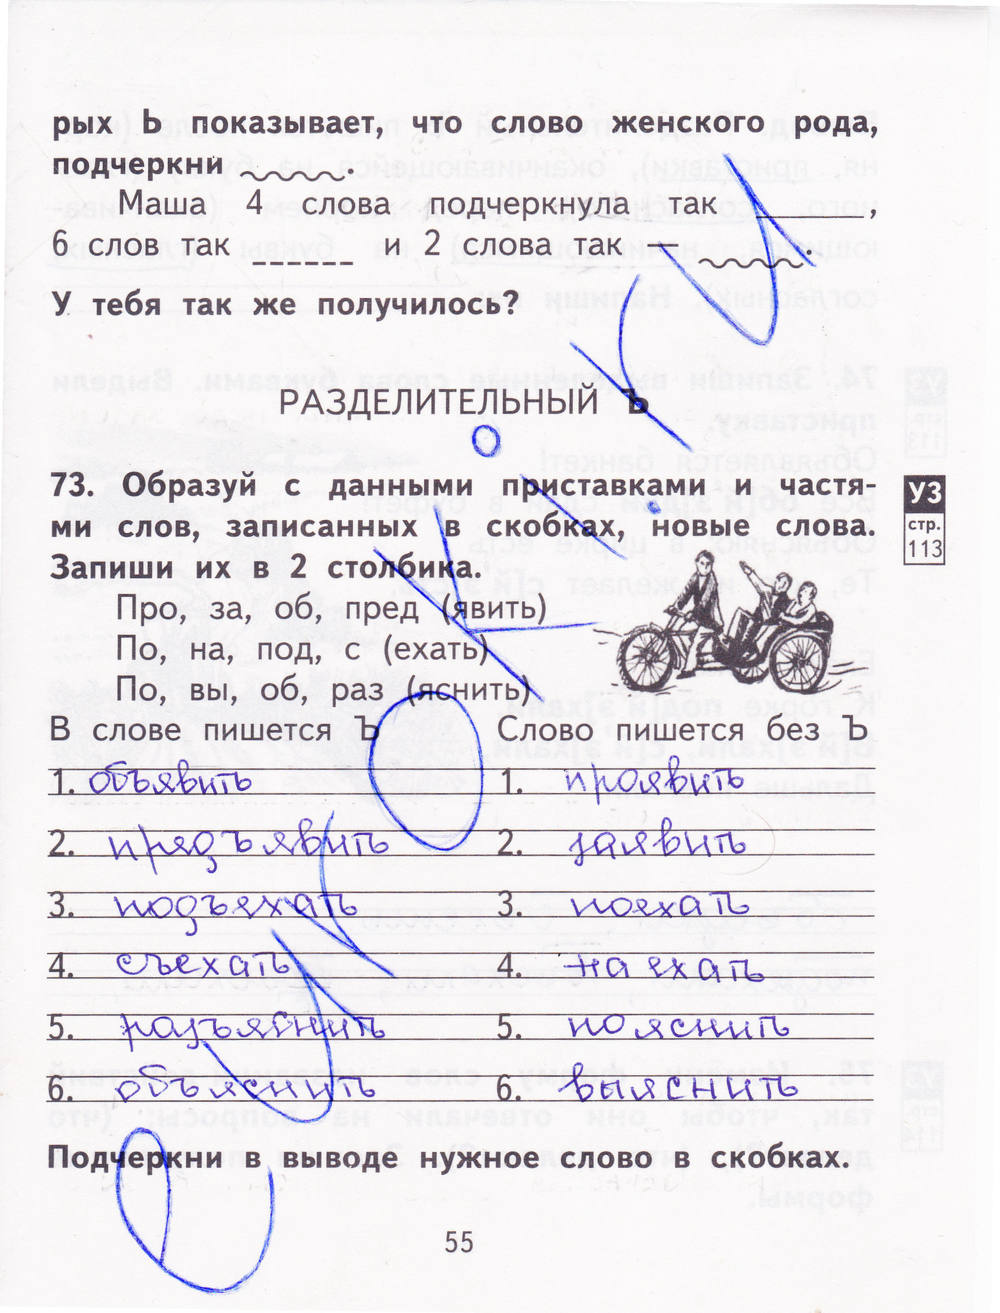 рых Ь показывает, что слово женского рода,
подчеркни ﹏﹏﹏.
Маша 4 слова подчеркнула так ______,
6 слов так ------ и 2 слова так ﹏﹏﹏.
У тебя так же получилось?
РАЗДЕЛИТЕЛЬНЫЙ Ъ
73. Образуй с данными приставками и частя-
ми слов, записанных в скобках, новые слова.
Запиши их в 2 столбика.
УЗ
стр.
113
Про, за, об, пред (явить)
По, на, под, с (ехать)
По, вы, об, раз (яснить)
В слове пишется Ъ Слово пишется без Ъ
1. объявить 1. проявить
2. предъявить 2. заявить
3. подъехать 3. поехать
4. съехать 4. наехать
5. разъяснить 5. пояснить
6. объяснить 6. выяснить
Подчеркни в выводе нужное слово в скобках.
55